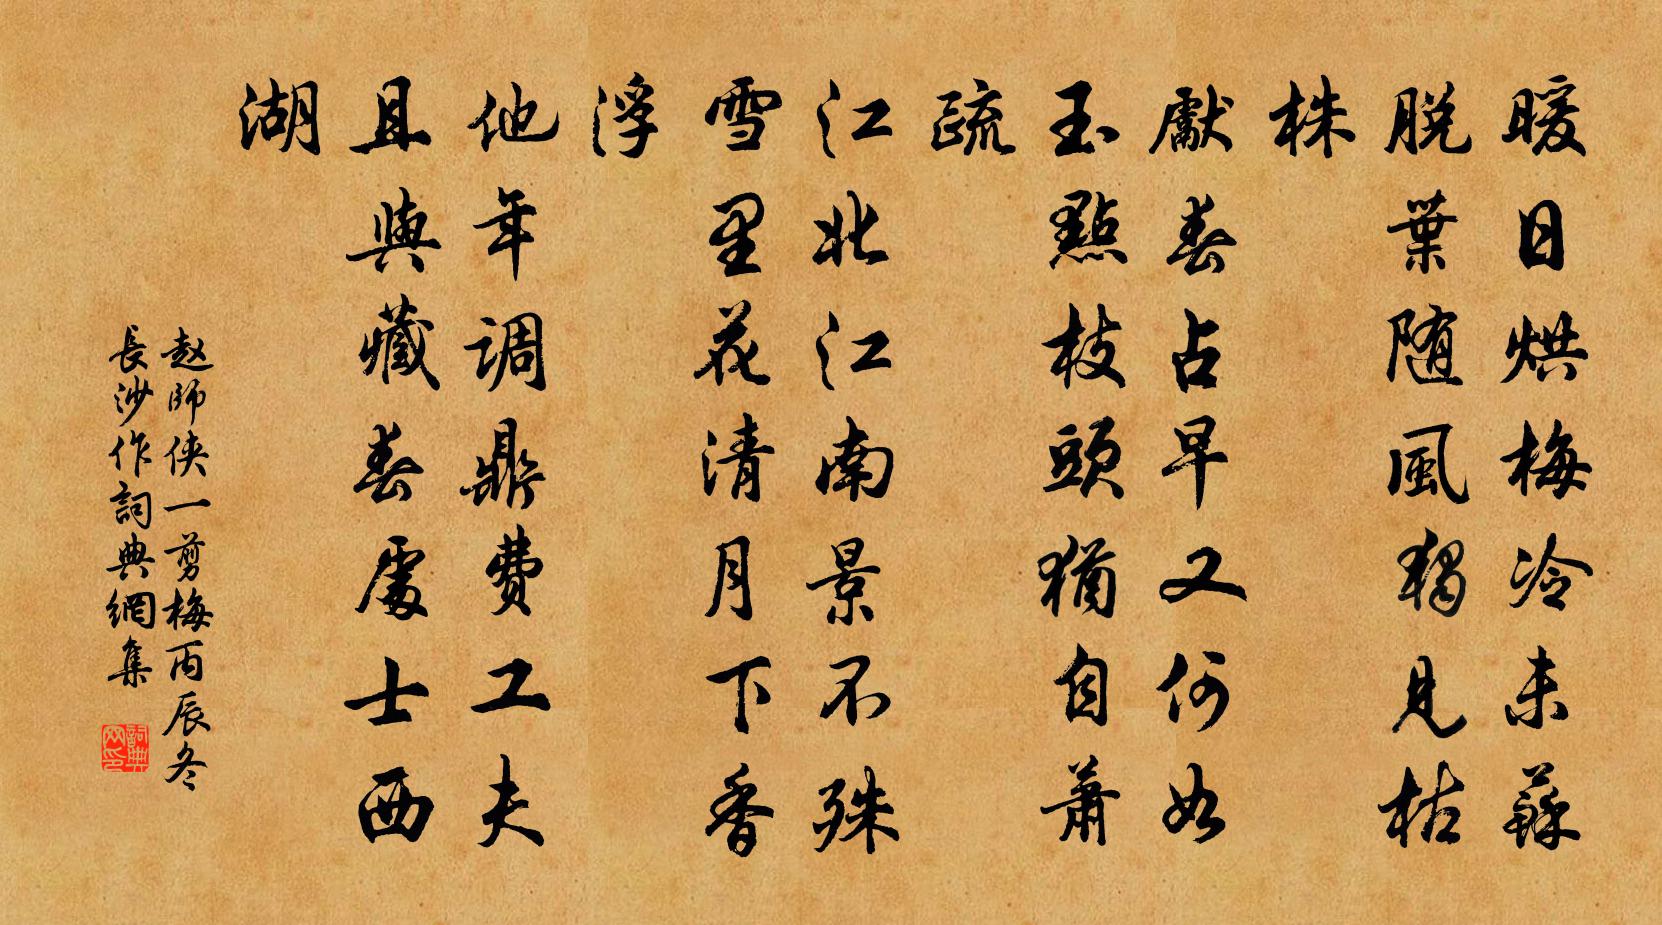 暖日烘梅冷未蘇
脫葉随風獨見枯
株
獻春占早又何如
玉點枝頭猶自蕭
疏
江北江南景不殊
雪里花清月下香
浮
他年调鼎費工夫
且與藏春處士西
湖
赵師侠一剪梅丙辰冬
長沙作詞典網集
詞典
网印